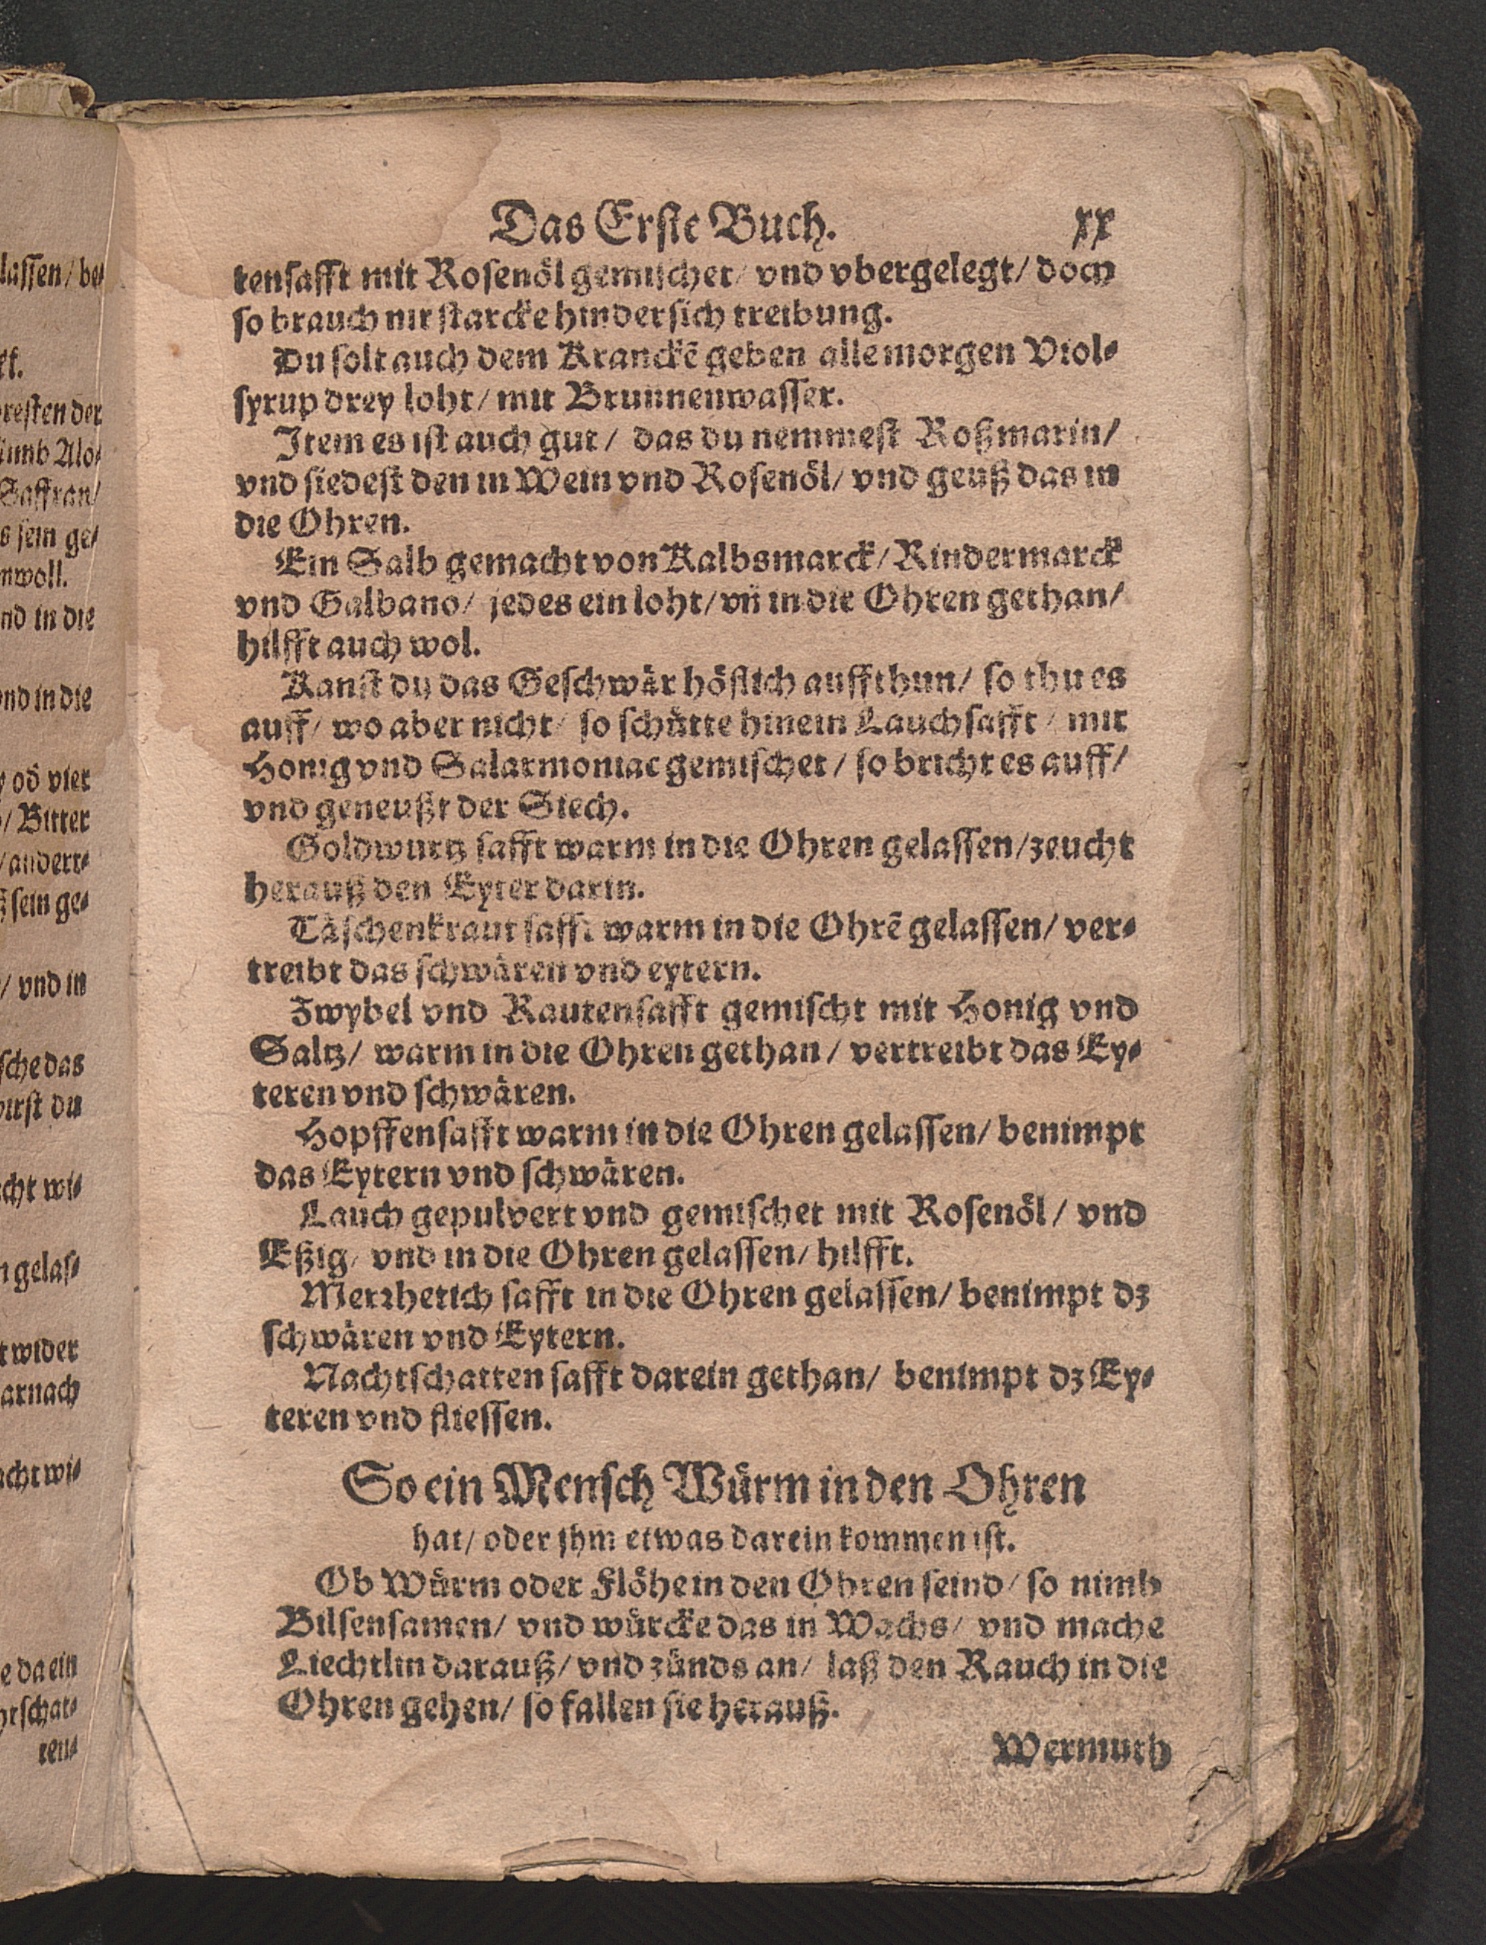 Das Erste Buch. xx
tensafft mit Rosenöl gemischet / vnd vbergelegt / doch
so brauch nit starcke hindersich treibung.
Du solt auch dem Kranckē geben alle morgen Viol-
syrup drey loht / mit Brunnenwasser.
Item es ist auch gut / das du nemmest Roßmarin /
vnd siedest den in Wein vnd Rosenöl / vnd geuß das in
die Ohren.
Ein Salb gemacht von Kalbsmarck / Rindermarck
vnd Galbano / jedes ein loht / vñ in die Ohren gethan /
hilfft auch wol.
Kanst du das Geschwär höflich auffthun / so thu es
auff / wo aber nicht / so schütte hinein Lauchsafft / mit
Honig vnd Salarmoniac gemischet / so bricht es auff /
vnd geneußt der Siech.
Goldwurtz safft warm in die Ohren gelassen / zeucht
herauß den Eyter darin.
Täschenkraut safft warm in die Ohrē gelassen / ver-
treibt das schwären vnd eytern.
Zwybel vnd Rautensafft gemischt mit Honig vnd
Saltz / warm in die Ohren gethan / vertreibt das Ey-
teren vnd schwären.
Hopffensafft warm in die Ohren gelassen / benimpt
das Eytern vnd schwären.
Lauch gepulvert vnd gemischet mit Rosenöl / vnd
Eßig / vnd in die Ohren gelassen / hilfft.
Merrhetich safft in die Ohren gelassen / benimpt dz
schwären vnd Eytern.
Nachtschatten safft darein gethan / benimpt dz Ey-
teren vnd fliessen.
So ein Mensch Würm in den Ohren
hat / oder jhm etwas darein kommen ist.
Ob Würm oder Flöhe in den Ohren seind / so nimb
Bilsensamen / vnd würcke das in Wachs / vnd mache
Liechtlin darauß / vnd zünds an / laß den Rauch in die
Ohren gehen / so fallen sie herauß.
Wermuth